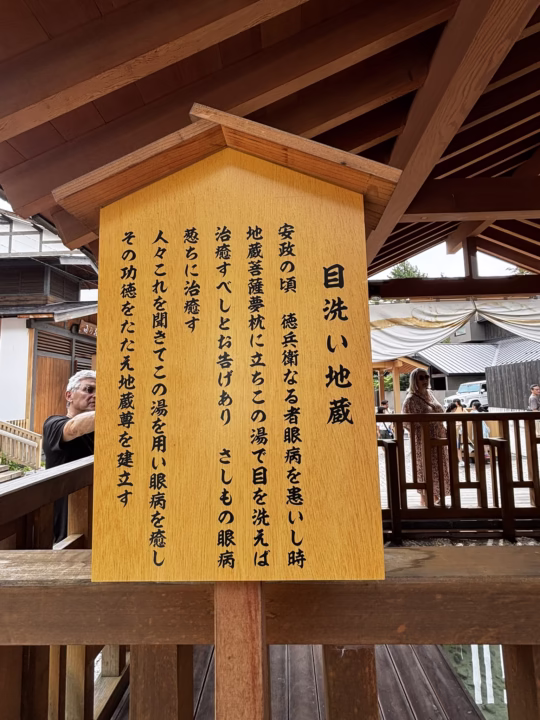 目洗い地蔵
安政の頃 徳兵衛なる者眼病を患いし時
地蔵菩薩夢枕に立ちこの湯で目を洗えば
治癒すべしとお告げあり さしもの眼病
忽ちに治癒す
人々これを聞きてこの湯を用い眼病を癒し
その功徳をたたえ地蔵尊を建立す